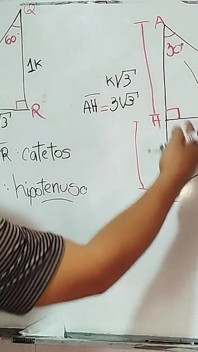 Q
60°
1k
R
√3
R : catetos
: hipotenusa
k√3
AH = 3√3
A
30°
H